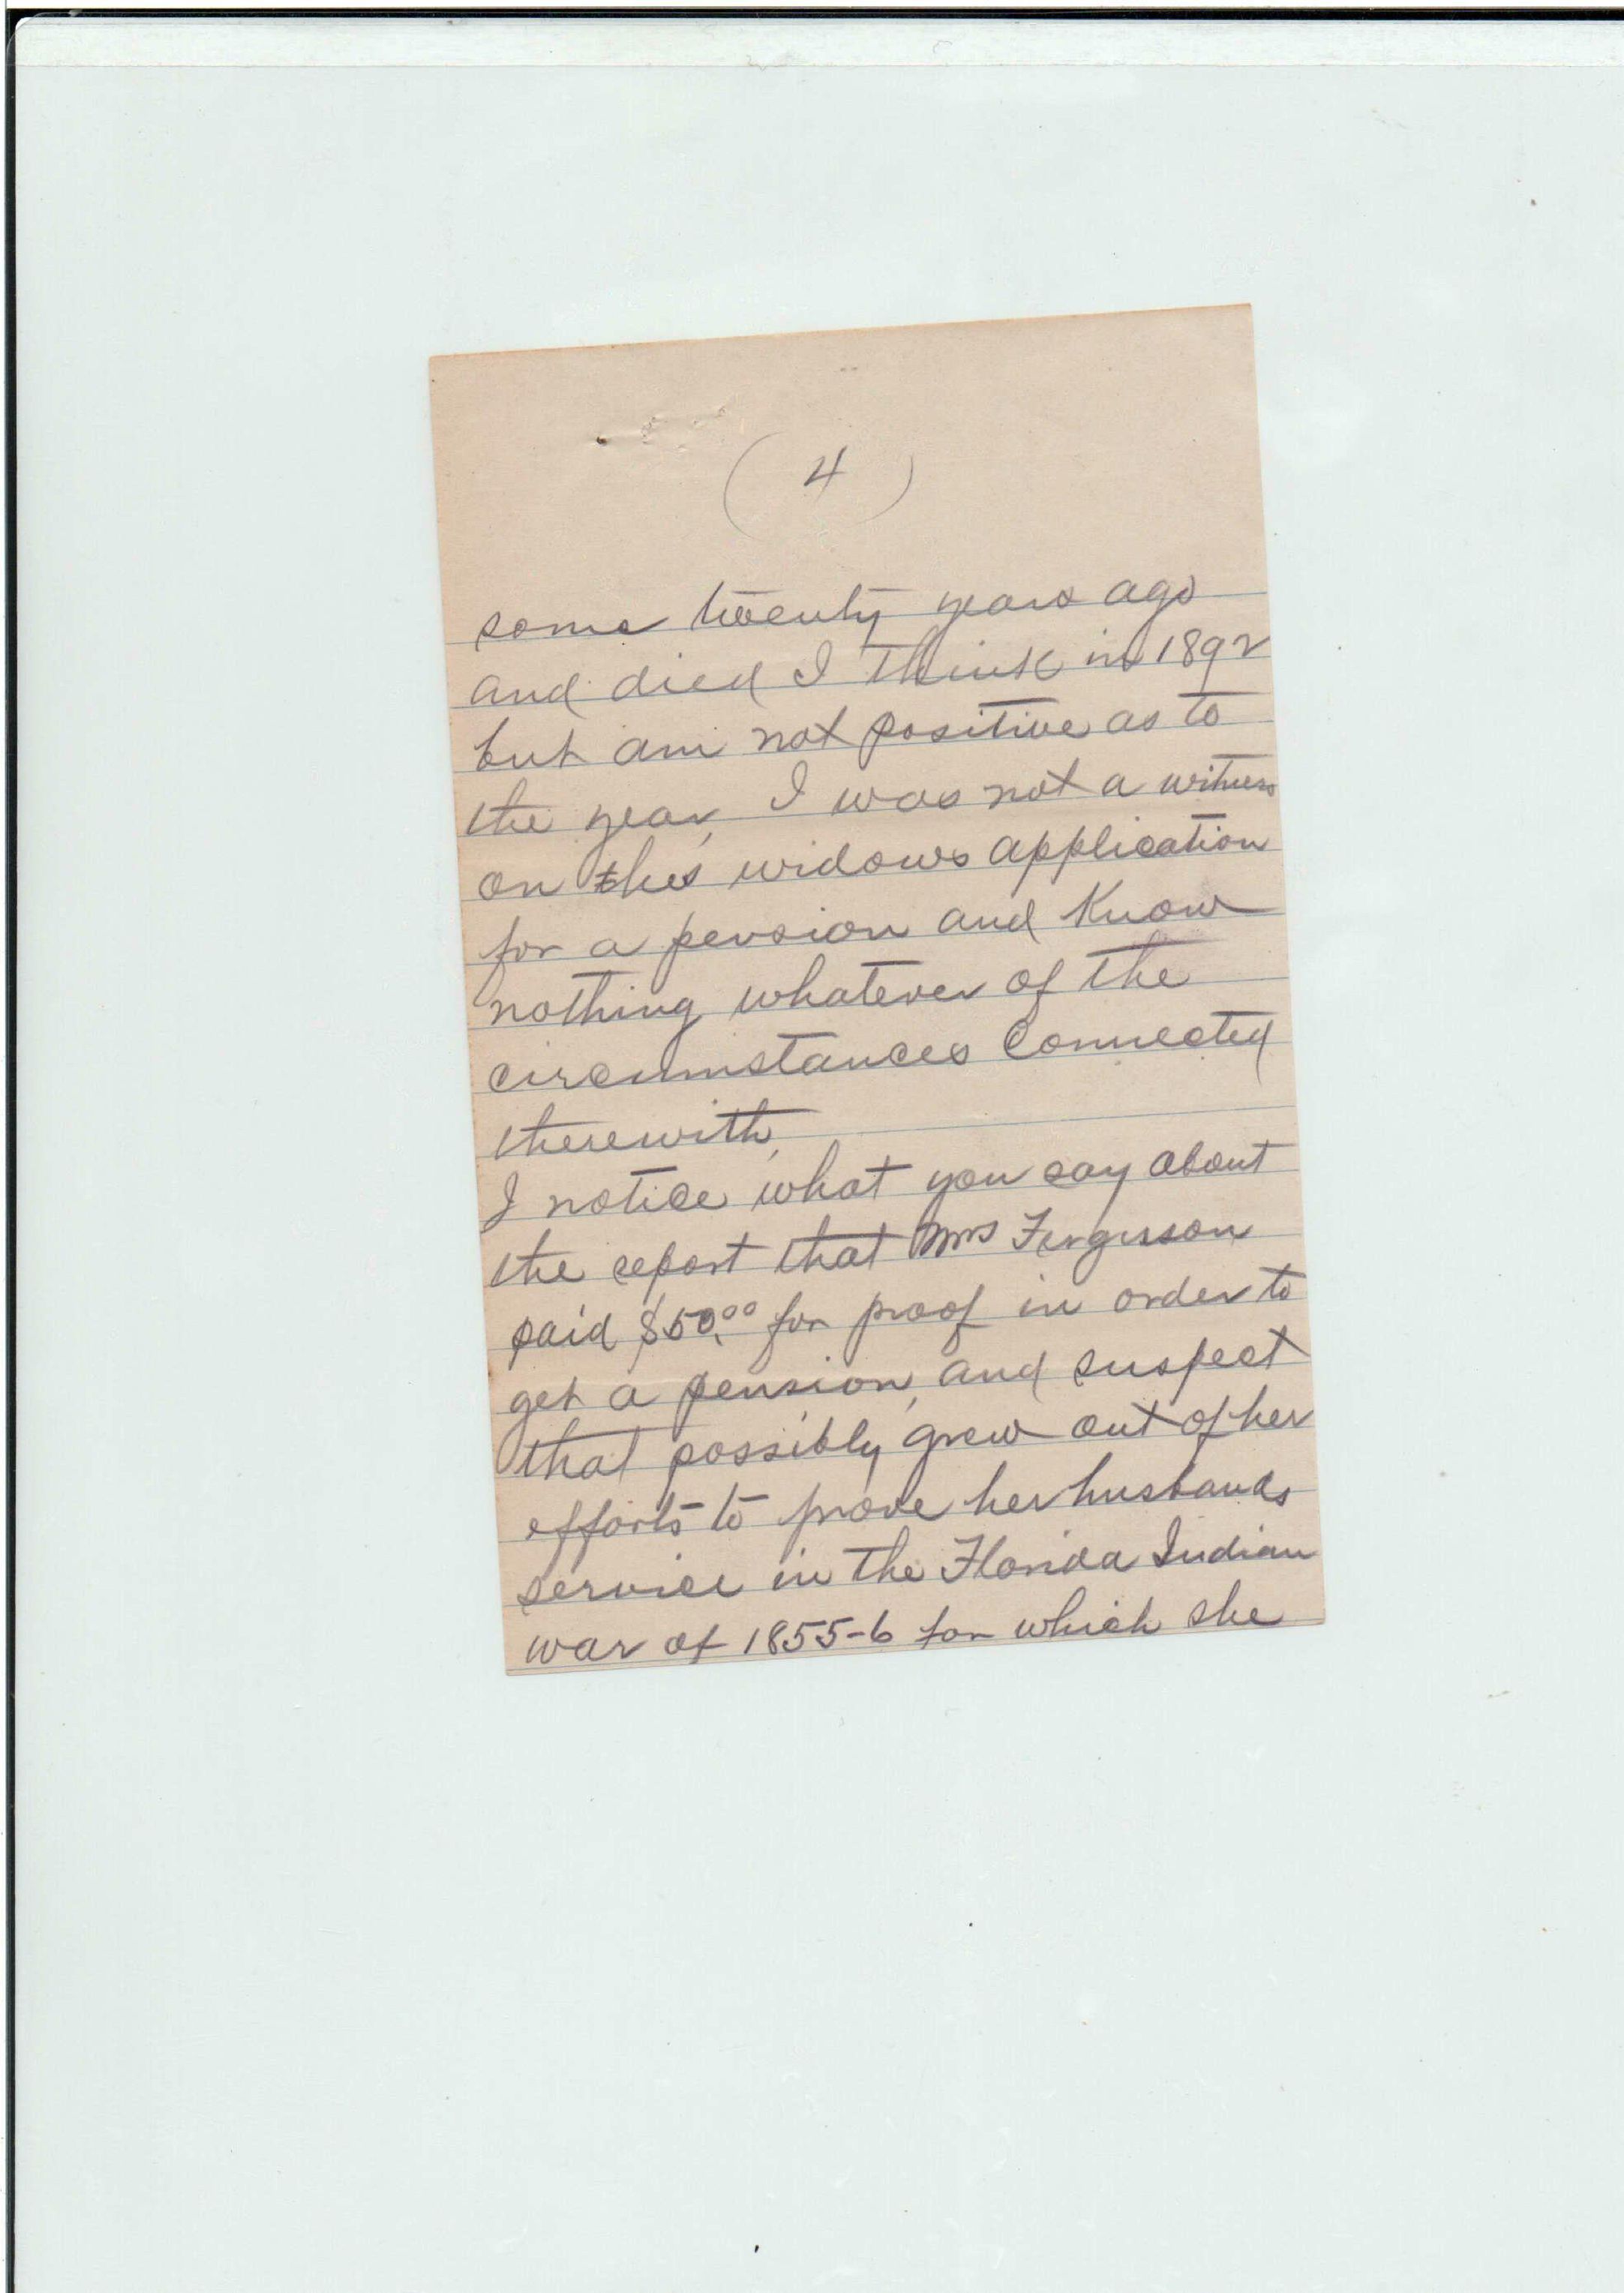 (4)
some twenty years ago
and died I think in 1892
but am not positive as to
the year, I was not a witness
on his widows application
for a pension and Know
nothing whatever of the
circumstances Connected
therewith,
I notice what you say about
the report that Mrs Fergusson
paid $50.00 for proof in order to
get a pension, and suspect
that possibly grew out of her
efforts to prove her husbands
service in the Florida Indian
war of 1855-6 for which she